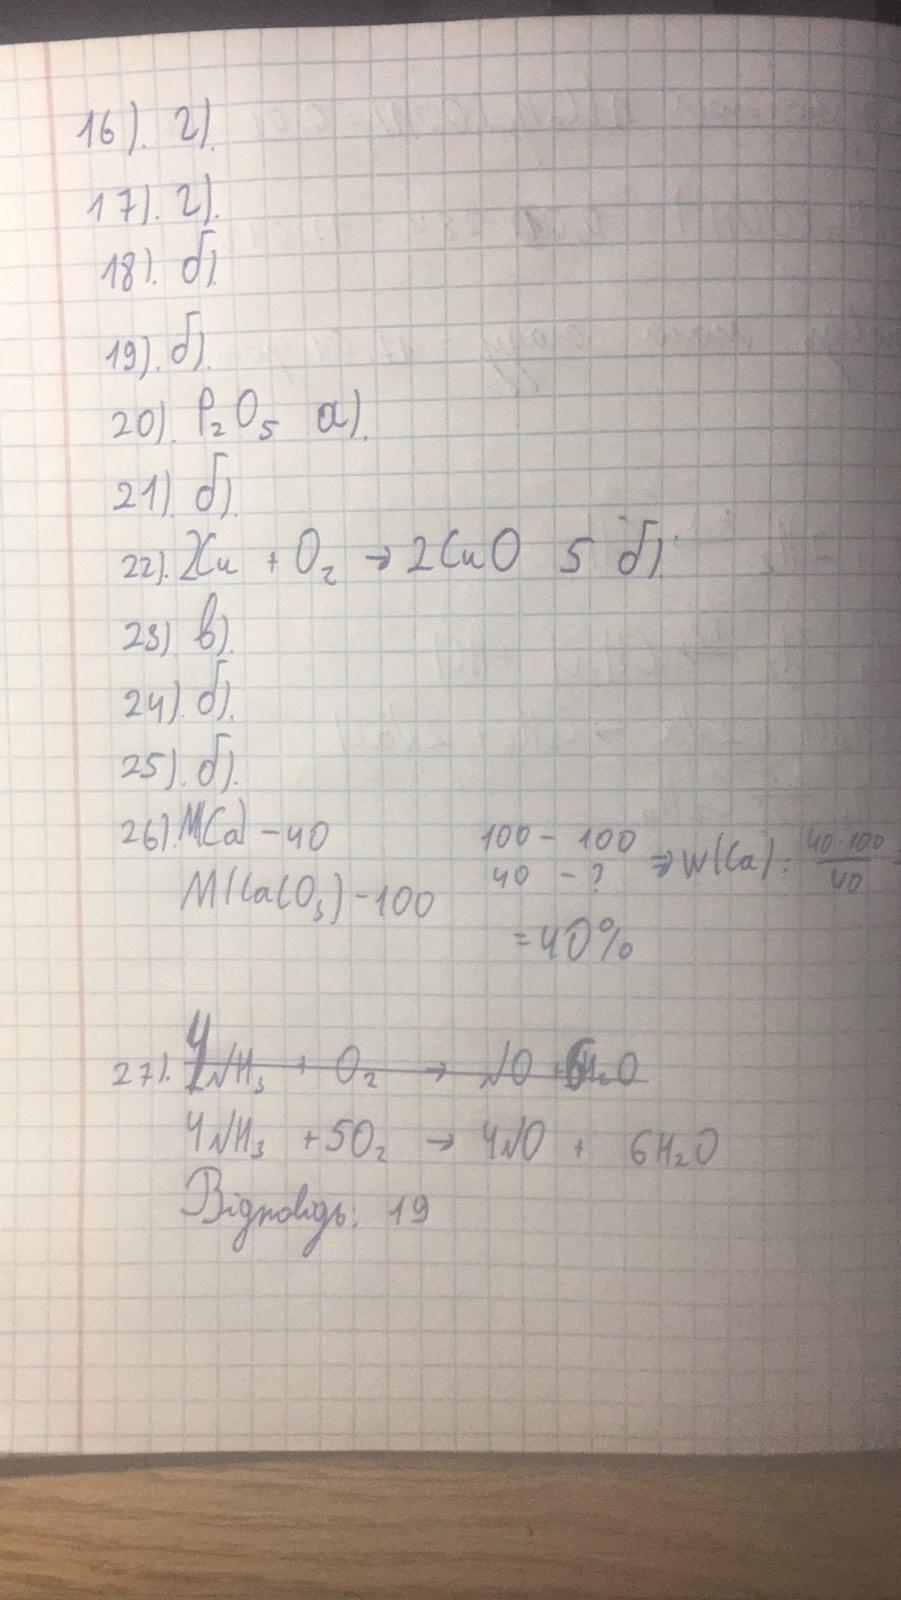 16). г).
17). г).
18). б).
19). б).
20). P₂O₅ а).
21). б).
22). 2Cu + O₂ → 2CuO 5 б).
23). в).
24). б).
25). б).
26). M(Ca) - 40 100 - 100 ⇒ W(Ca): 40·100/40 =
M(CaCO₃) - 100 40 - ?
= 40%
27). 4NH₃ + O₂ → NO + 6H₂O
4NH₃ + 5O₂ → 4NO + 6H₂O
Відповідь: 19